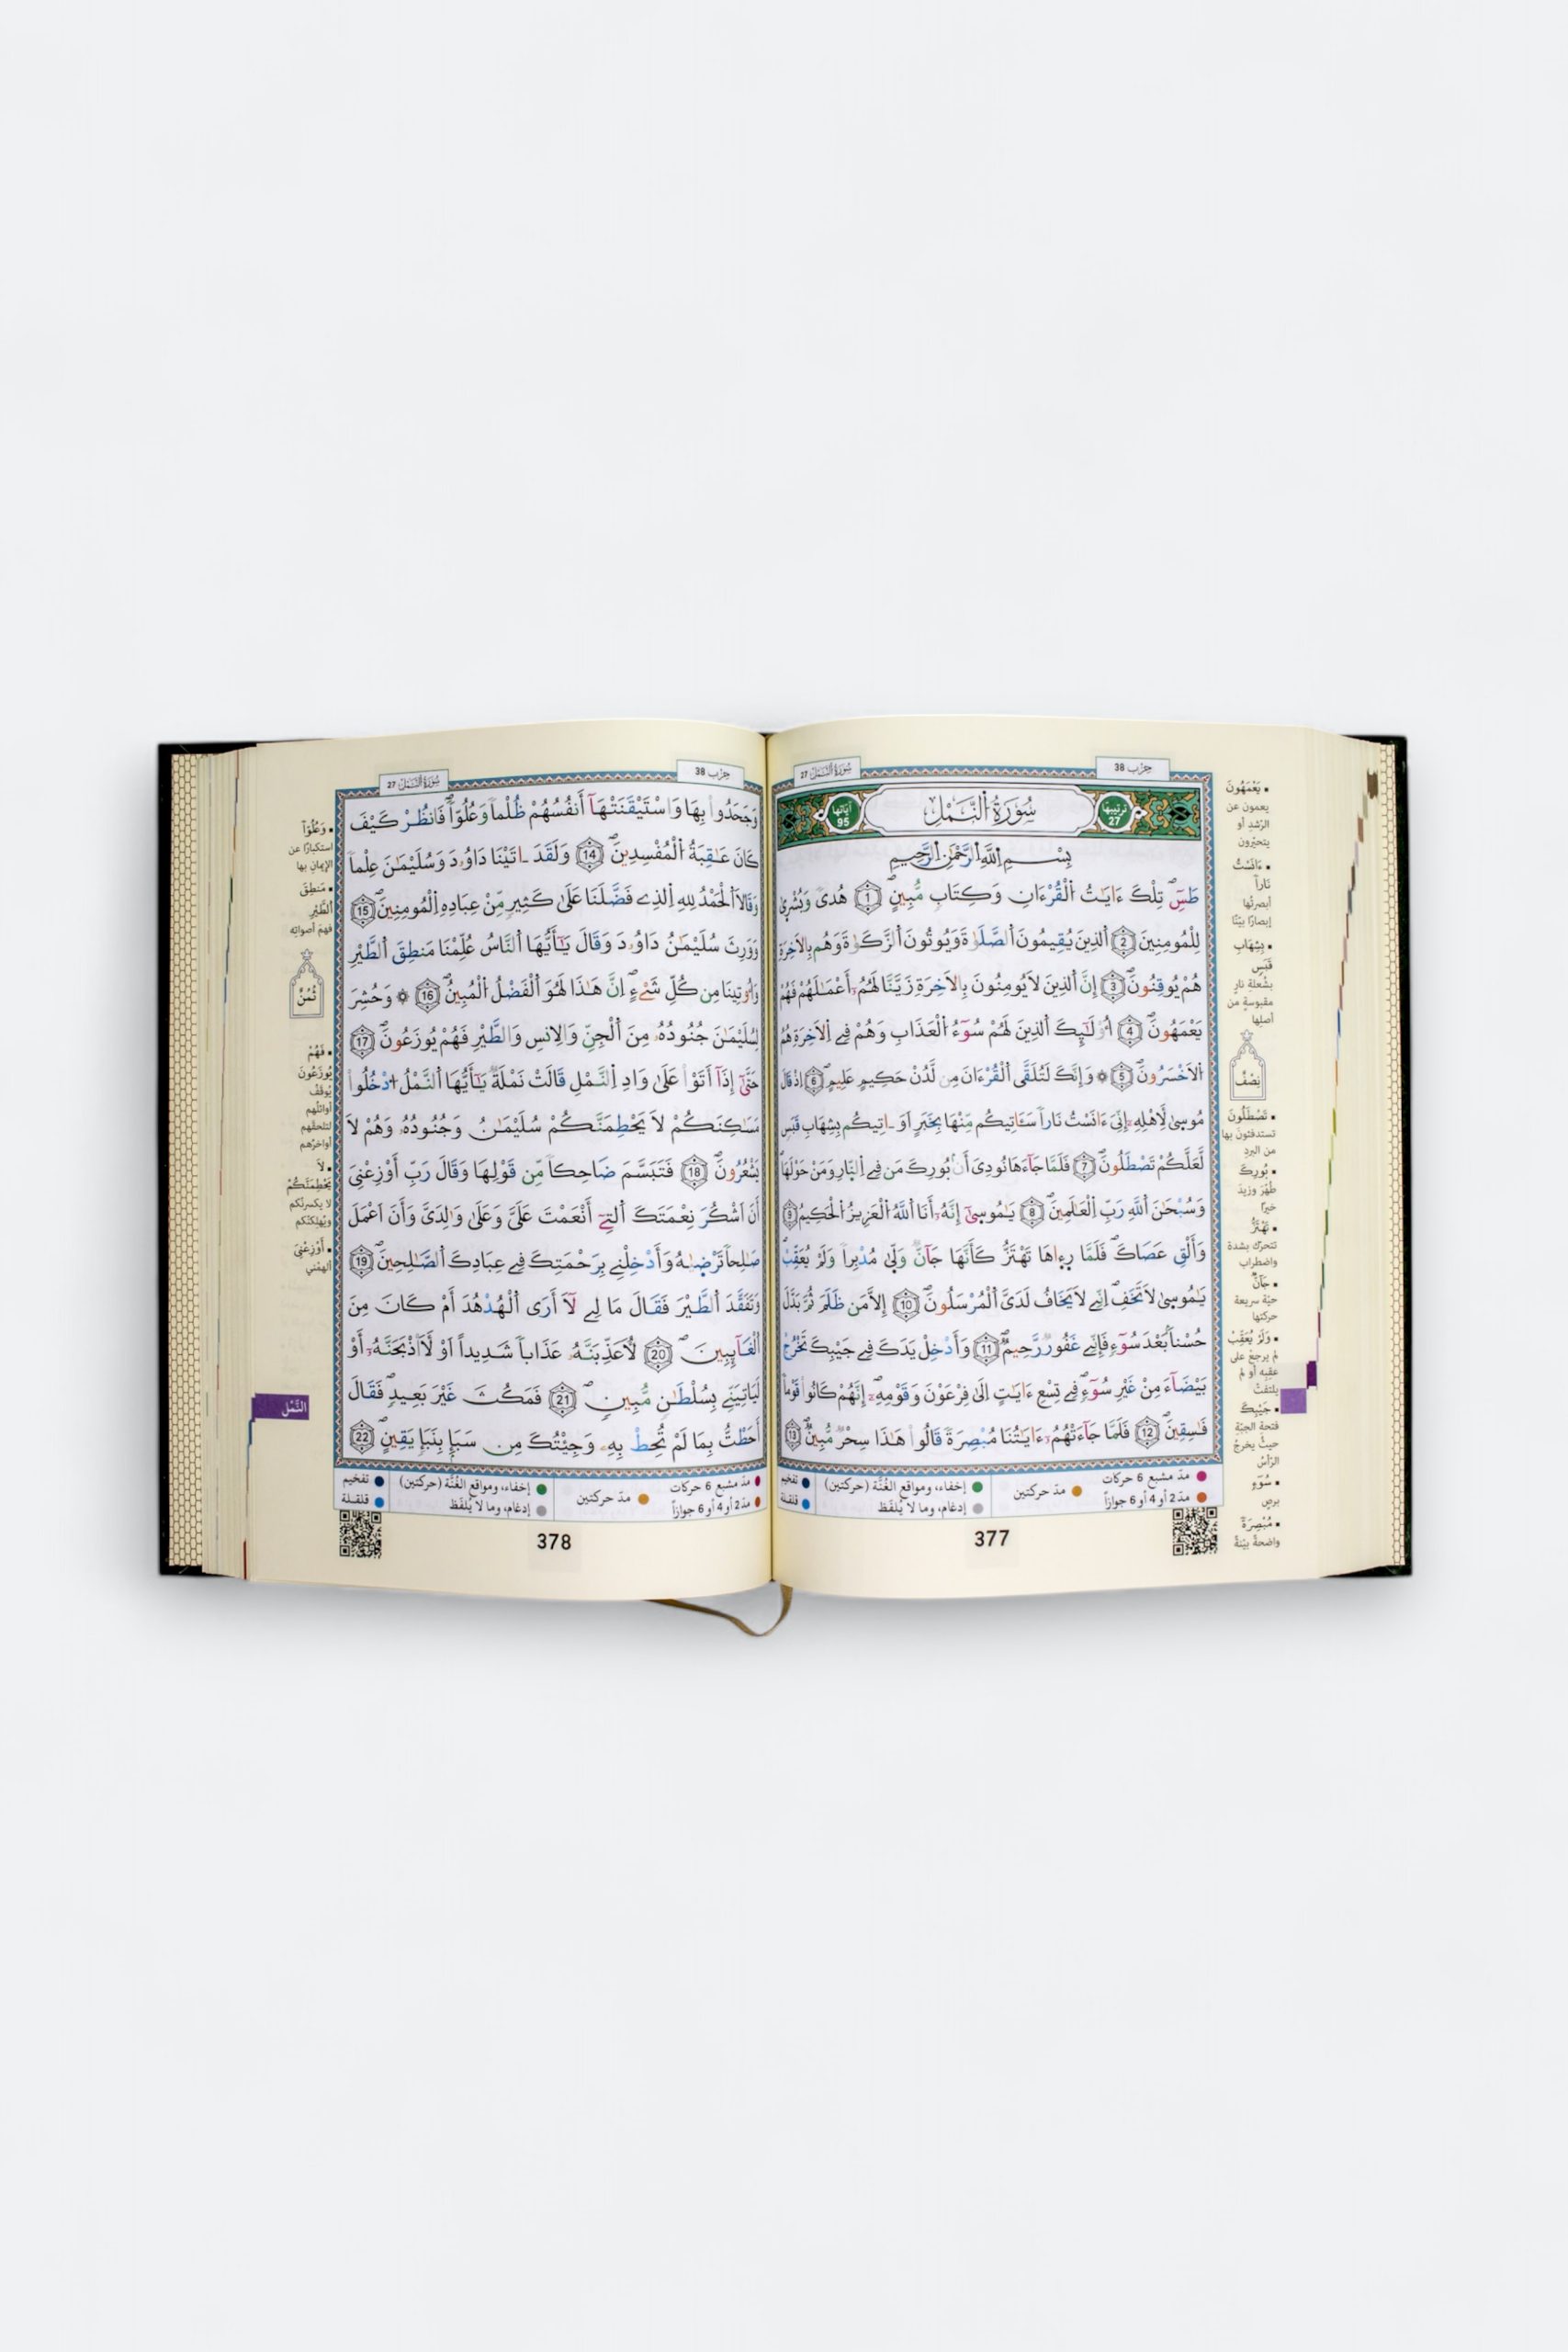 سُورَةُ النَّمْلِ 27
حِزْب 38
ترتيبها 27
سُورَةُ النَّمْلِ
آياتها 95
بِسْمِ اللَّهِ الرَّحْمَٰنِ الرَّحِيمِ
طَسِٓۖ تِلْكَ ءَايَٰتُ اُ۬لْقُرْءَانِ وَكِتَابٖ مُّبِينٍۖ 1 هُدىٗ وَبُشْر۪يٰ
لِلْمُومِنِينَ 2 اَ۬لذِينَ يُقِيمُونَ اَ۬لصَّلَوٰةَ وَيُوتُونَ اَ۬لزَّكَوٰةَ وَهُم بِالَاخِرَةِ
هُمْ يُوقِنُونَۖ 3 إِنَّ اَ۬لذِينَ لَا يُومِنُونَ بِالَاخِرَةِ زَيَّنَّا لَهُمُۥٓ أَعْمَٰلَهُمْ فَهُمْ
يَعْمَهُونَۖ 4 أُوْلَٰٓئِكَ اَ۬لذِينَ لَهُمْ سُوٓءُ اُ۬لْعَذَابِ وَهُمْ فِے اِ۬لَاخِرَةِ هُمُ
اُ۬لَاخْسَرُونَۖ 5 ۞ وَإِنَّكَ لَتُلَقَّى اَ۬لْقُرْءَانَ مِن لَّدُنْ حَكِيمٍ عَلِيمٍۖ 6 اِذْ قَالَ
مُوس۪يٰ لِأَهْلِهِۦٓ إِنِّيَ ءَانَسْتُ نَاراٗ سَـَٔاتِيكُم مِّنْهَا بِخَبَرٍ اَوَ اٰتِيكُم بِشِهَابِ قَبَسٖ
لَّعَلَّكُمْ تَصْطَلُونَۖ 7 فَلَمَّا جَآءَهَا نُودِيَ أَنۢ بُورِكَ مَن فِے اِ۬لنّ۪ارِ وَمَنْ حَوْلَهَاۖ
وَسُبْحَٰنَ اَ۬للَّهِ رَبِّ اِ۬لْعَٰلَمِينَۖ 8 يَٰمُوس۪يٰٓ إِنَّهُۥٓ أَنَا اَ۬للَّهُ اُ۬لْعَزِيزُ اُ۬لْحَكِيمُ 9
وَأَلْقِ عَصَاكَۖ فَلَمَّا ر۪ء۪اهَا تَهْتَزُّ كَأَنَّهَا جَآنّٞ وَلّ۪يٰ مُدْبِراٗ وَلَمْ يُعَقِّبْۖ
يَٰمُوس۪يٰ لَا تَخَفِۖ اِنِّے لَا يَخَافُ لَدَيَّ اَ۬لْمُرْسَلُونَۖ 10 إِلَّا مَن ظَلَمَ ثُمَّ بَدَّلَ
حُسْناَۢ بَعْدَ سُوٓءٖ فَإِنِّے غَفُورٞ رَّحِيمٞۖ 11 وَأَدْخِلْ يَدَكَ فِے جَيْبِكَ تَخْرُجْ
بَيْضَآءَ مِنْ غَيْرِ سُوٓءٖۖ فِے تِسْعِ ءَايَٰتٍ اِلَىٰ فِرْعَوْنَ وَقَوْمِهِۦٓۖ إِنَّهُمْ كَانُواْ قَوْماٗ
فَٰسِقِينَۖ 12 فَلَمَّا جَآءَتْهُمُۥٓ ءَايَٰتُنَا مُبْصِرَةٗ قَالُواْ هَٰذَا سِحْرٞ مُّبِينٞۖ 13
مدّ مشبع 6 حركات
مدّ 2 أو 4 أو 6 جوازاً
مدّ حركتين
إخفاء، ومواقع الغُنَّة (حركتين)
إدغام، وما لا يُلفَظ
تفخيم
قلقلة
377
يَعْمَهُونَ
يعمون عن
الرّشد أو
يتحيّرون
ءَانَسْتُ
نَاراً
أبصرتُها
إبصارًا بيّنًا
بِشِهَابِ
قَبَسٍ
بشُعلةِ نارٍ
مقبوسةٍ من
أصلِها
نِصْفُ
تَصْطَلُونَ
تستدفئون بها
من البردِ
بُورِكَ
طُهّرَ وزيدَ
خيرًا
تَهْتَزُّ
تتحرّك بشدة
واضطراب
جَآنٌّ
حيّة سريعة
حركتها
وَلَمْ يُعَقِّبْ
لم يرجعْ على
عقِبه أو لم
يلتفتْ
جَيْبِكَ
فتحةِ الجبّةِ
حيثُ يخرجُ
الرّأسُ
سُوٓءٍ
برصٍ
مُبْصِرَةً
واضحةً بيّنةً
حِزْب 38
سُورَةُ النَّمْلِ 27
وَجَحَدُواْ بِهَا وَاسْتَيْقَنَتْهَآ أَنفُسُهُمْ ظُلْماٗ وَعُلُوّاٗۖ فَانظُرْ كَيْفَ
كَانَ عَٰقِبَةُ اُ۬لْمُفْسِدِينَۖ 14 وَلَقَدَ اٰتَيْنَا دَاوُۥدَ وَسُلَيْمَٰنَ عِلْماٗ
وَقَالَا اَ۬لْحَمْدُ لِلهِ اِ۬لذِے فَضَّلَنَا عَلَىٰ كَثِيرٖ مِّنْ عِبَادِهِ اِ۬لْمُومِنِينَۖ 15
وَوَرِثَ سُلَيْمَٰنُ دَاوُۥدَ وَقَالَ يَٰٓأَيُّهَا اَ۬لنَّاسُ عُلِّمْنَا مَنطِقَ اَ۬لطَّيْرِ
وَأُوتِينَا مِن كُلِّ شَےْءٍۖ اِنَّ هَٰذَا لَهُوَ اَ۬لْفَضْلُ اُ۬لْمُبِينُۖ 16 ۞ وَحُشِرَ
لِسُلَيْمَٰنَ جُنُودُهُۥ مِنَ اَ۬لْجِنِّ وَالِانسِ وَالطَّيْرِ فَهُمْ يُوزَعُونَۖ 17
حَتَّىٰٓ إِذَآ أَتَوْاْ عَلَىٰ وَادِ اِ۬لنَّمْلِ قَالَتْ نَمْلَةٞ يَٰٓأَيُّهَا اَ۬لنَّمْلُ اُ۟دْخُلُواْ
مَسَٰكِنَكُمْ لَا يَحْطِمَنَّكُمْ سُلَيْمَٰنُ وَجُنُودُهُۥ وَهُمْ لَا
يَشْعُرُونَۖ 18 فَتَبَسَّمَ ضَاحِكاٗ مِّن قَوْلِهَا وَقَالَ رَبِّ أَوْزِعْنِيَ
أَنَ اَشْكُرَ نِعْمَتَكَ اَ۬لتِےٓ أَنْعَمْتَ عَلَيَّ وَعَلَىٰ وَٰلِدَيَّ وَأَنَ اَعْمَلَ
صَٰلِحاٗ تَرْضَيٰهُ وَأَدْخِلْنِے بِرَحْمَتِكَ فِے عِبَادِكَ اَ۬لصَّٰلِحِينَۖ 19
وَتَفَقَّدَ اَ۬لطَّيْرَ فَقَالَ مَا لِے لَآ أَرَى اَ۬لْهُدْهُدَ أَمْ كَانَ مِنَ
اَ۬لْغَآئِبِينَۖ 20 لَأُعَذِّبَنَّهُۥ عَذَاباٗ شَدِيداً اَوْ لَأَاْذْبَحَنَّهُۥٓ أَوْ
لَيَاتِيَنِّے بِسُلْطَٰنٖ مُّبِينٖۖ 21 فَمَكُثَ غَيْرَ بَعِيدٖۖ فَقَالَ
أَحَطتُّ بِمَا لَمْ تُحِطْ بِهِۦ وَجِئْتُكَ مِن سَبَإٍ بِنَبَإٖ يَقِينٍۖ 22
مدّ مشبع 6 حركات
مدّ 2 أو 4 أو 6 جوازاً
مدّ حركتين
إخفاء، ومواقع الغُنَّة (حركتين)
إدغام، وما لا يُلفَظ
تفخيم
قلقلة
378
وَعُلُوّاً
استكبارًا عن
الإيمانِ بها
مَنطِقَ
اَلطَّيْرِ
فهمَ أصواتِه
ثُمُنُ
فَهُمْ
يُوزَعُونَ
يُوقَفُ
أوائلُهم
لتلحقَهم
أواخرُهم
لَا
يَحْطِمَنَّكُمْ
لا يكسرنّكم
ويُهلِكنّكم
أَوْزِعْنِيَ
ألهِمْني
النَّمْل